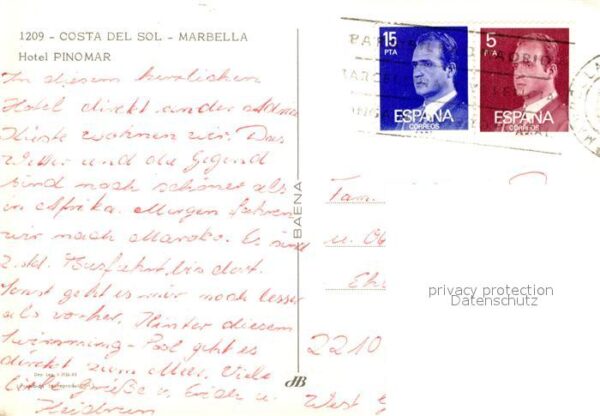 1209 - COSTA DEL SOL - MARBELLA
Hotel PINOMAR
In diesem herrlichen
Hotel direkt an der
Küste wohnen wir. Das
Wetter und die Gegend
sind noch schöner als
in Afrika. Morgen fahren
wir nach Maroko. Es sind
2. Std. Busfahrt, bis dort.
Sonst geht es mir noch besser
als vorher. Hinter diesem
Swimming-Pool geht es
direkt zum Meer. Viele
liebe Grüße v. Erich u.
Heidrun
BAENA
15
PTA
ESPAÑA
CORREOS
5
PTA
ESPAÑA
CORREOS
MADRID
Fam.
u.
privacy protection
Datenschutz
2210
West